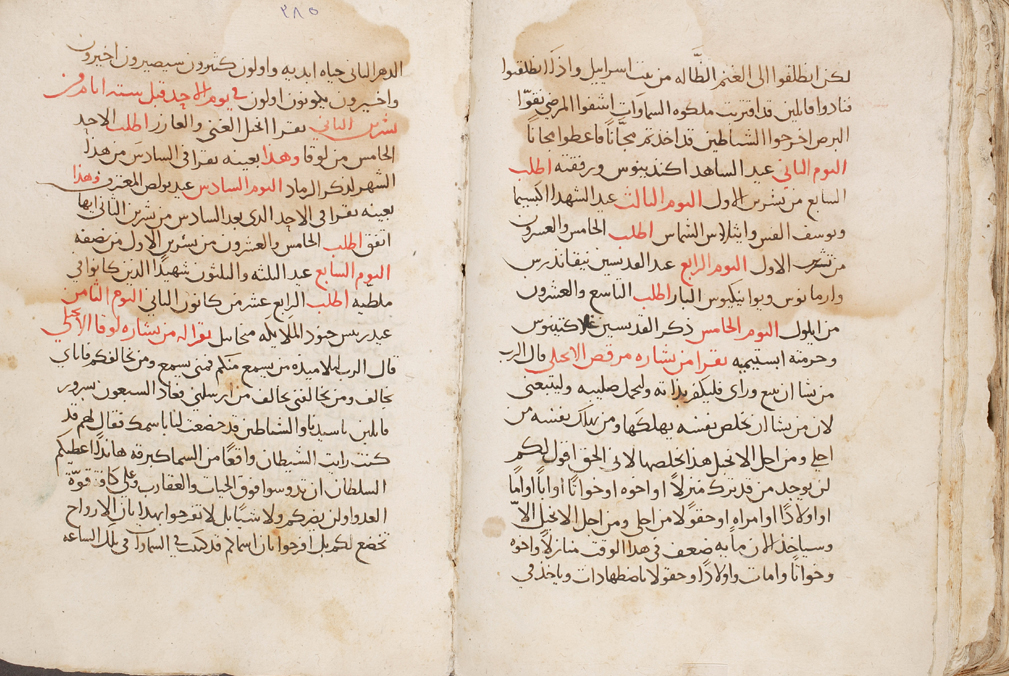 لكن انطلقوا الى الغنم الضاله من بيت اسراييل واذ انطلقتوا
فنادوا قايلين قد اقتربت ملكوه السماوات اشفوا المرضى نقوا
البرص اخرجوا الشياطين قد اخذتم مجانًا فاعطوا مجانًا
اليوم الثاني عيد الساهد اكندينوس ورفقته اطلب
السابع من تشرين الاول اليوم الثالث عيد الشهدا اكبسيما
ويوسف القس وايثالاس الشماس اطلب الخامس والعسرون
من تشرين الاول اليوم الرابع عيد القديسين نيقاندرس
وارمانوس ويوانيكيوس البار اطلب التاسع والعشرون
من ايلول اليوم الخامس ذكر القديسين غلاكتيوس
وحرمته ابستيميه نقرا من بشاره مرقص الانجيلي قال الرب
من يشا ان يتبع وراي فليكفر بذاته وليحمل صليبه وليتبعني
لان من يشا ان يخلص نفسه يهلكها ومن يهلك نفسه من
اجلي ومن اجل الانجيل هذا يخلصها لاني الحق اقول لكم
لن يوجد من قد ترك منزلاً او اخوه او اخواتًا او ابًا او امًا
او اولادًا او امراه او حقولا من اجلي ومن اجل الانجيل الاّ
وسياخذ الان مايه ضعف في هذا الوقت منازلاً واخوه
وخواتًا وامات واولادًا وحقولا باضطهادات وياخذ في
٣٨٥
الدهر الاتي حياه ابديه واولون كثيرون سيصيرون اخيرون
واخيرون يكونون اولون في يوم الاحد قبل سته ايام من
تشرين الثاني نقرا انجيل الغني والعازر اطلب الاحد
الخامس من لوقا وهذا بعينه نقرا في السادس من هذا
الشهر لذكر الرماد اليوم السادس عيد بولص المعترف وهذا
بعينه نقرا في الاحد الذي بعد السادس من تشرين الثاني ايها
اتفق اطلب الخامس والعشرون من تشرين الاول من نصفه
اليوم السابع عيد الثلثه والثلثون شهيدًا الذين كانوا في
ملطيه اطلب الرابع عشر من كانون الثاني اليوم الثامن
عيد ريس جنود الملايكه ميخاييل نقرا له من بشاره لوقا الانجيلي
قال الرب لتلاميذه من يسمع منكم فمني يسمع ومن يخالفكم فاياي
يخالف ومن يخالفني يخالف من ارسلني فعاد السبعون بسرور
قايلين يا سيدنا والشياطين قد خضعت لنا باسمك فقال لهم قد
كنت رايت الشيطان واقعًا من السما كبرقه هانذا اعطيكم
السلطان ان تدوسوا فوق الحيات والعقارب وعلى كافة قوة
العدو ولن يضركم ولا شيًا بل لا تفرحوا بهذا بان الارواح
تخضع لكم بل افرحوا بان اسماكم قد كتبت في السموات في تلك الساعه